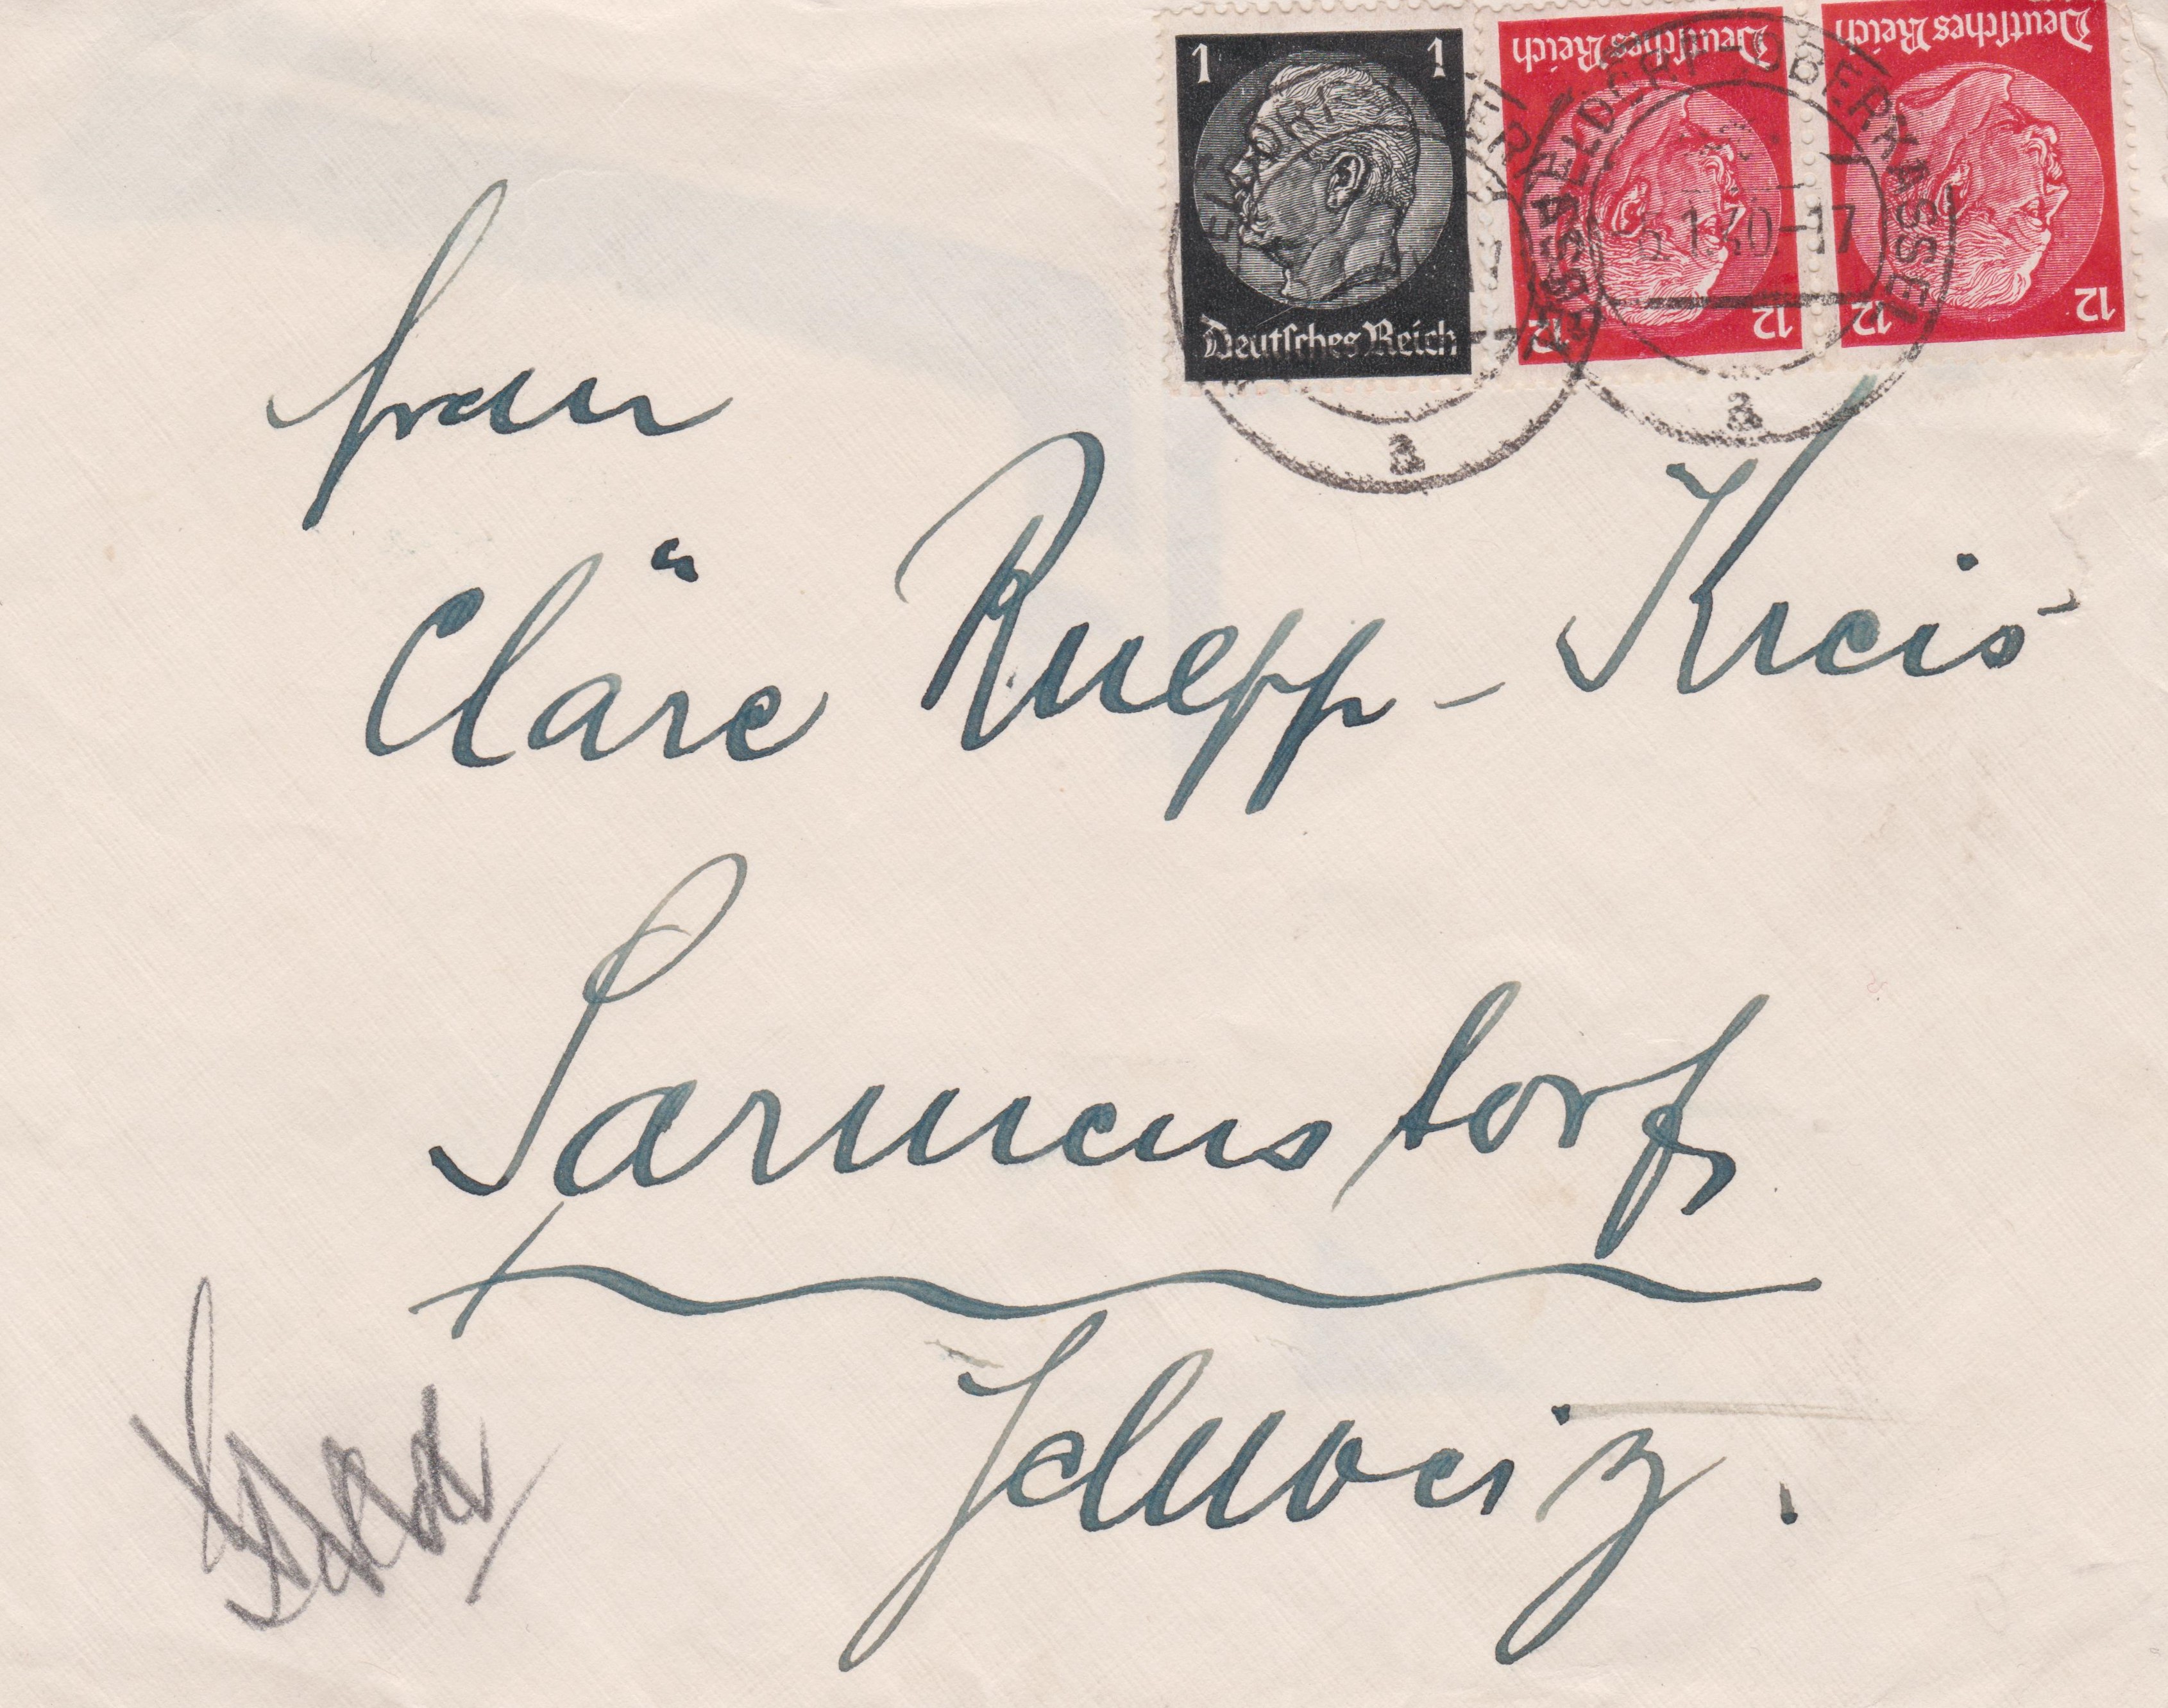 1 1
Deutsches Reich
Deutsches Reich
12 12
Deutsches Reich
12 12
DÜSSELDORF-OBERKASSEL
1.40-17
a
a
Frau
Cläre Ruepp-Kreis
Sarmenstorf
Schweiz.